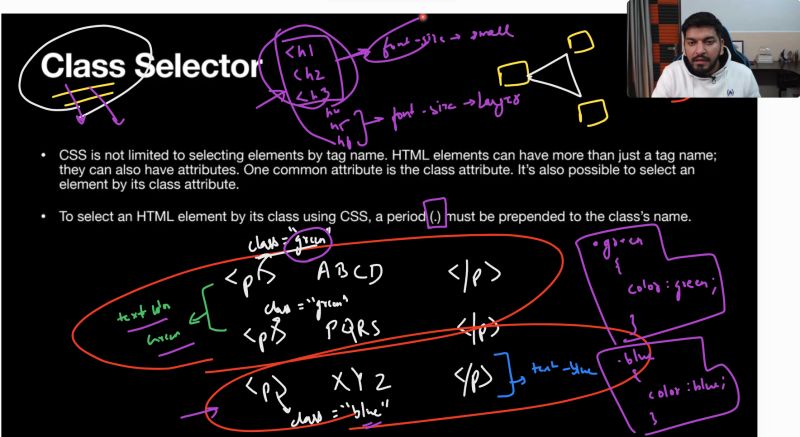 Class Selector
<h1
<h2
<h3
font-size → small
h4
h5
h6
font-size → larger
• CSS is not limited to selecting elements by tag name. HTML elements can have more than just a tag name;
they can also have attributes. One common attribute is the class attribute. It's also possible to select an
element by its class attribute.
• To select an HTML element by its class using CSS, a period (.) must be prepended to the class's name.
class = "green"
<p> ABCD </p>
class = "green"
<p> PQRS </p>
green
<p> XYZ </p>
class = "blue"
text-blue
.green
{
color: green;
}
.blue
{
color: blue;
}